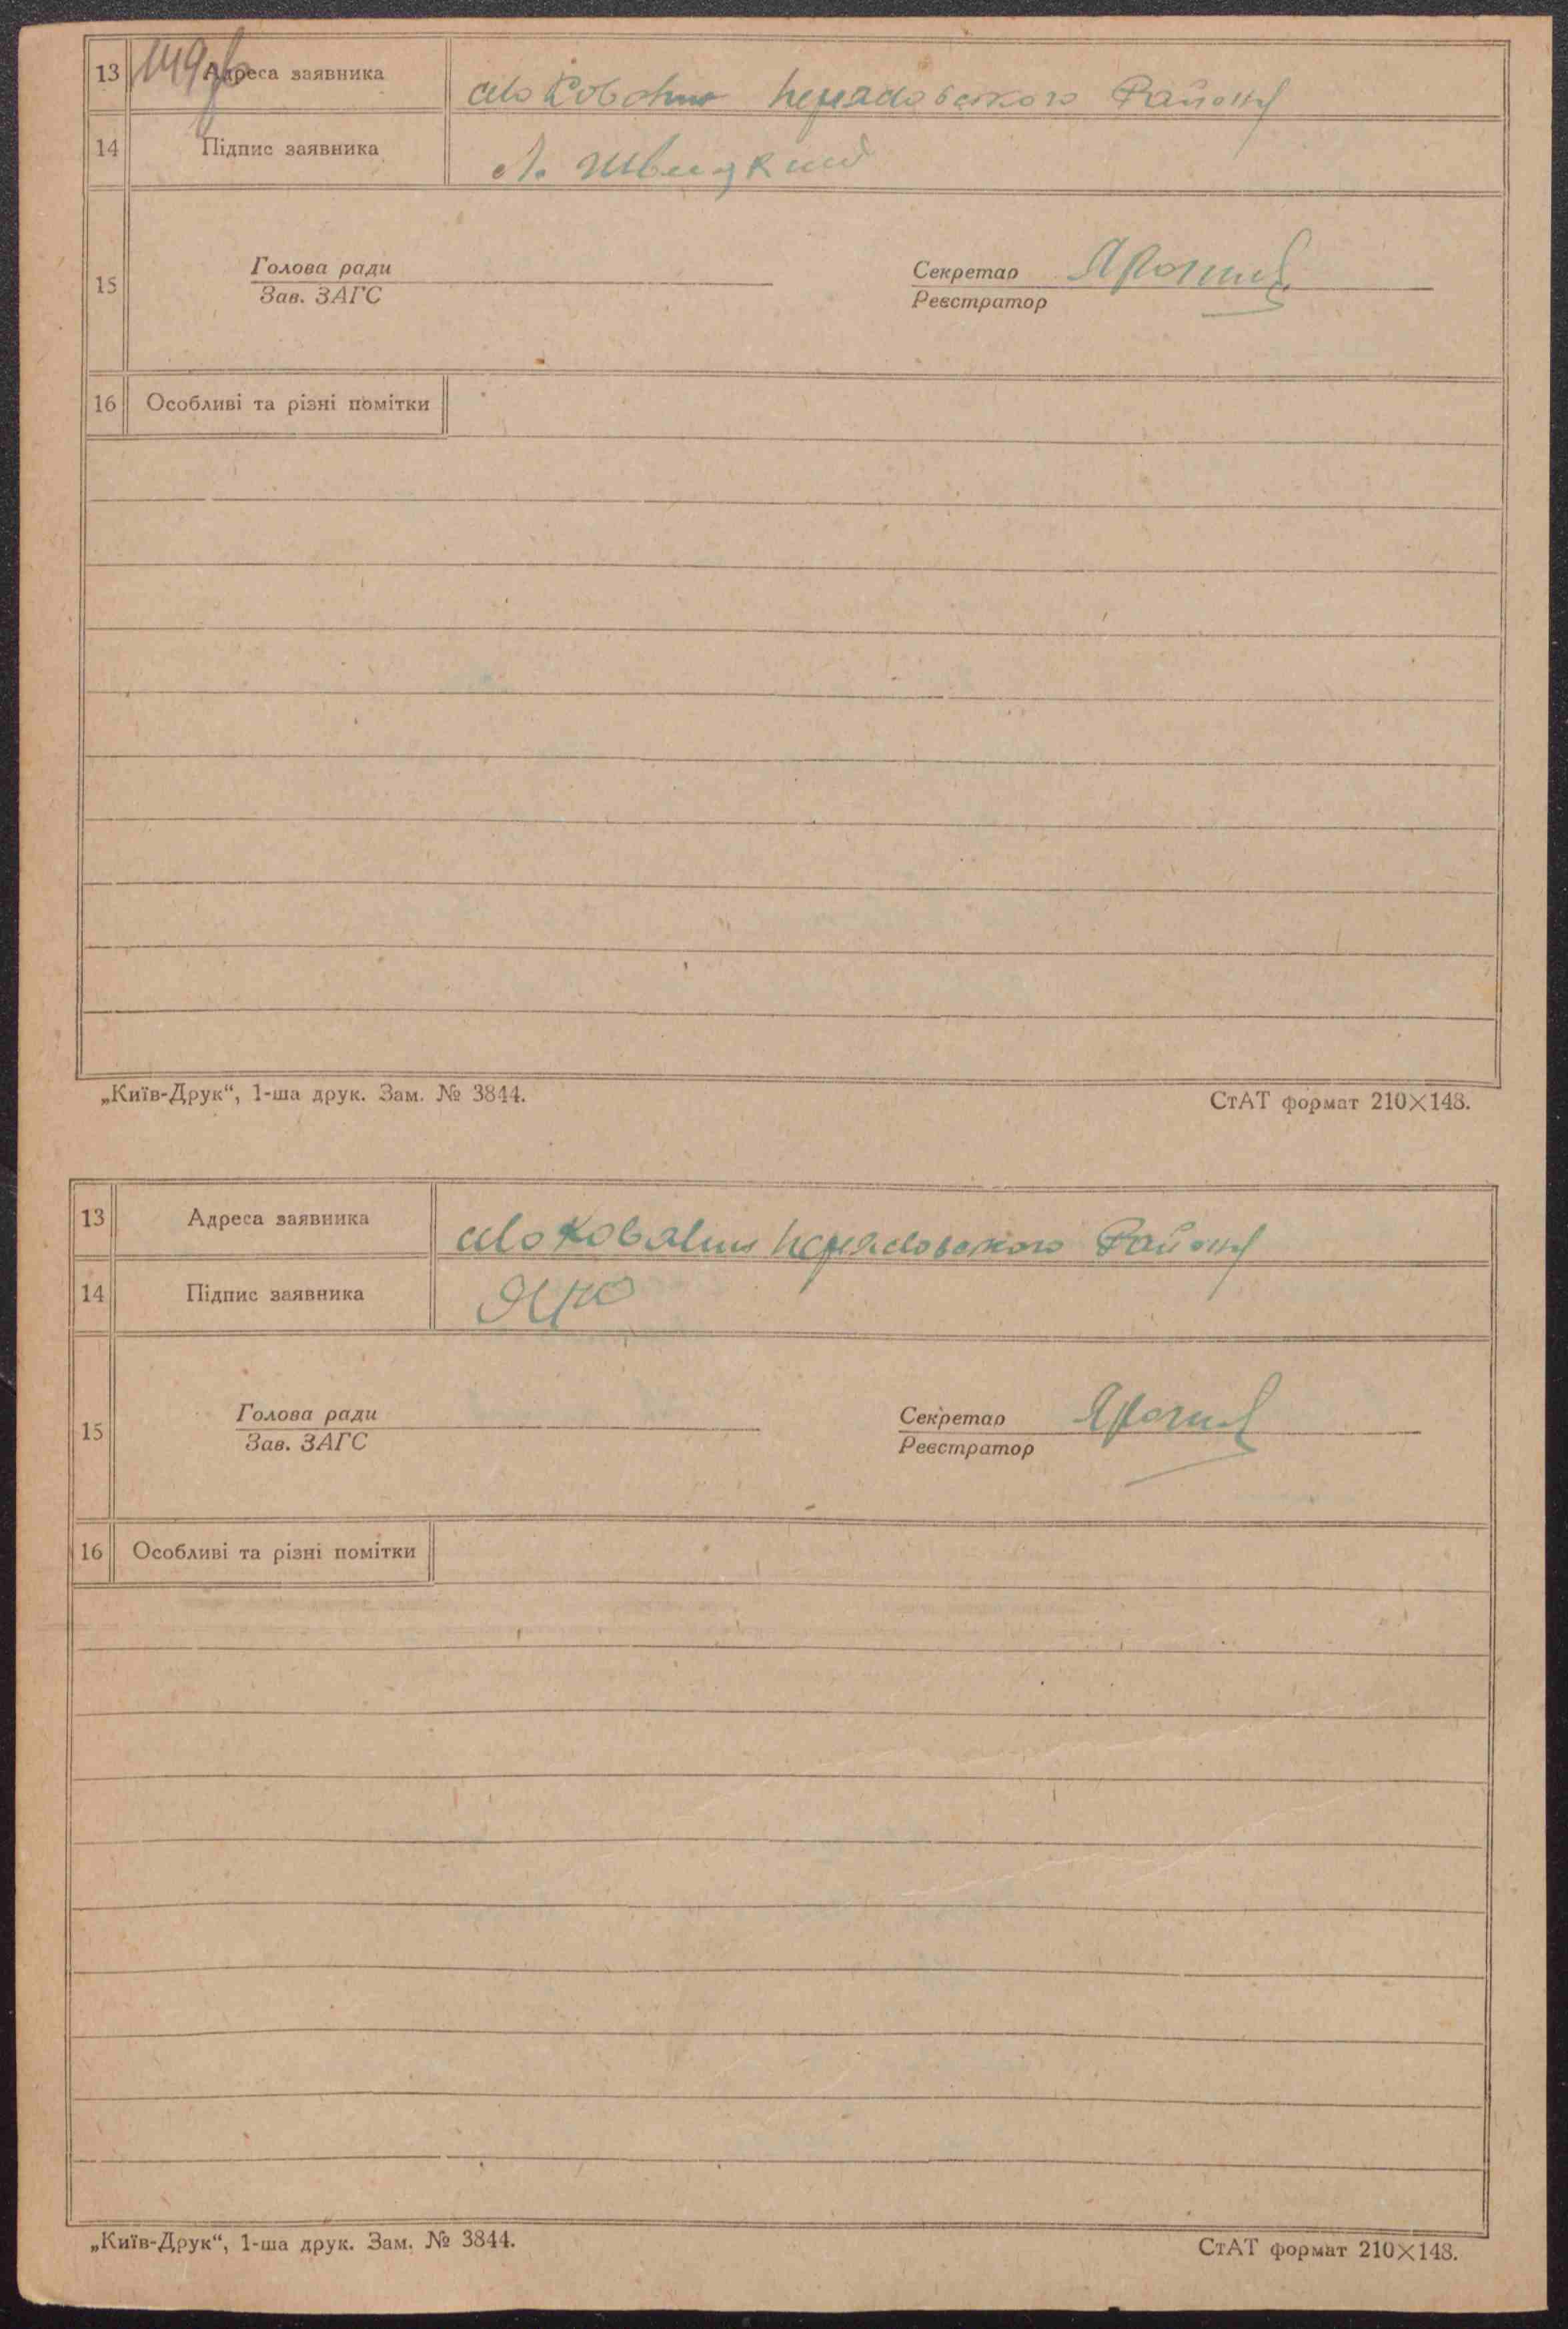 149зв
13 Адреса заявника село Ковалин Переяславського Району
14 Підпис заявника Л. Швидкий
15 Голова ради Секретар
Зав. ЗАГС Реєстратор
16 Особливі та різні помітки
„Київ-Друк“, 1-ша друк. Зам. № 3844. СтАТ формат 210×148.
13 Адреса заявника село Ковалин Переяславського Району
14 Підпис заявника
15 Голова ради Секретар
Зав. ЗАГС Реєстратор
16 Особливі та різні помітки
„Київ-Друк“, 1-ша друк. Зам. № 3844. СтАТ формат 210×148.